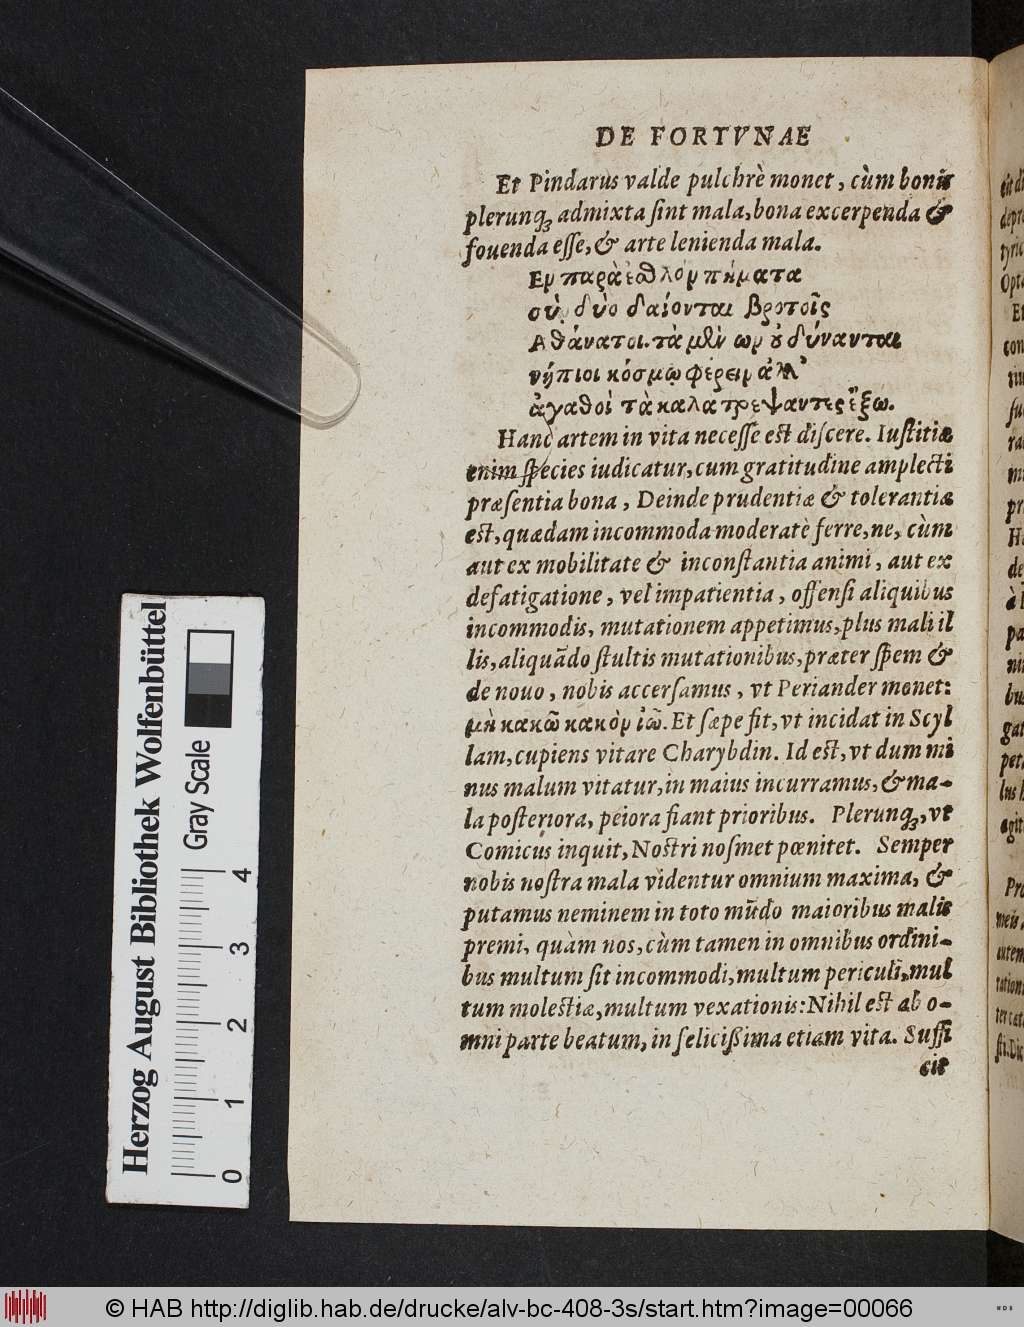 DE FORTVNAE
Et Pindarus valde pulchrè monet, cùm bonis
plerunqꝫ admixta ſint mala, bona excerpenda &
fouenda eſſe, & arte lenienda mala.
Εν παρὰ ἐσθλὸν πήματα
σὺν δύο δαίονται βροτοῖς
Αθάνατοι. τὰ μὲν ὠν οὐ δύνανται
νήπιοι κόσμῳ φέρειν ἀλλ'
ἀγαθοὶ τὰ καλὰ τρέψαντες ἔξω.
Hanc artem in vita neceſſe eſt diſcere. Iuſtitiæ
enim ſpecies iudicatur, cum gratitudine amplecti
præſentia bona, Deinde prudentiæ & tolerantiæ
eſt, quædam incommoda moderatè ferre, ne, cùm
aut ex mobilitate & inconſtantia animi, aut ex
defatigatione, vel impatientia, offenſi aliquibus
incommodis, mutationem appetimus, plus mali il
lis, aliquãdo ſtultis mutationibus, præter ſpem &
de nouo, nobis accerſamus, vt Periander monet:
μὴ κακῷ κακὸν ἰῶ. Et ſæpe fit, vt incidat in Scyl
lam, cupiens vitare Charybdin. Id eſt, vt dum mi
nus malum vitatur, in maius incurramus, & ma-
la poſteriora, peiora fiant prioribus. Plerunqꝫ, vt
Comicus inquit, Noſtri noſmet pœnitet. Semper
nobis noſtra mala videntur omnium maxima, &
putamus neminem in toto mũdo maioribus malis
premi, quàm nos, cùm tamen in omnibus ordini-
bus multum ſit incommodi, multum periculi, mul
tum moleſtiæ, multum vexationis: Nihil eſt ab o-
mni parte beatum, in feliciſsima etiam vita. Suffi
cit
Herzog August Bibliothek Wolfenbüttel
Gray Scale
0 1 2 3 4
© HAB http://diglib.hab.de/drucke/alv-bc-408-3s/start.htm?image=00066